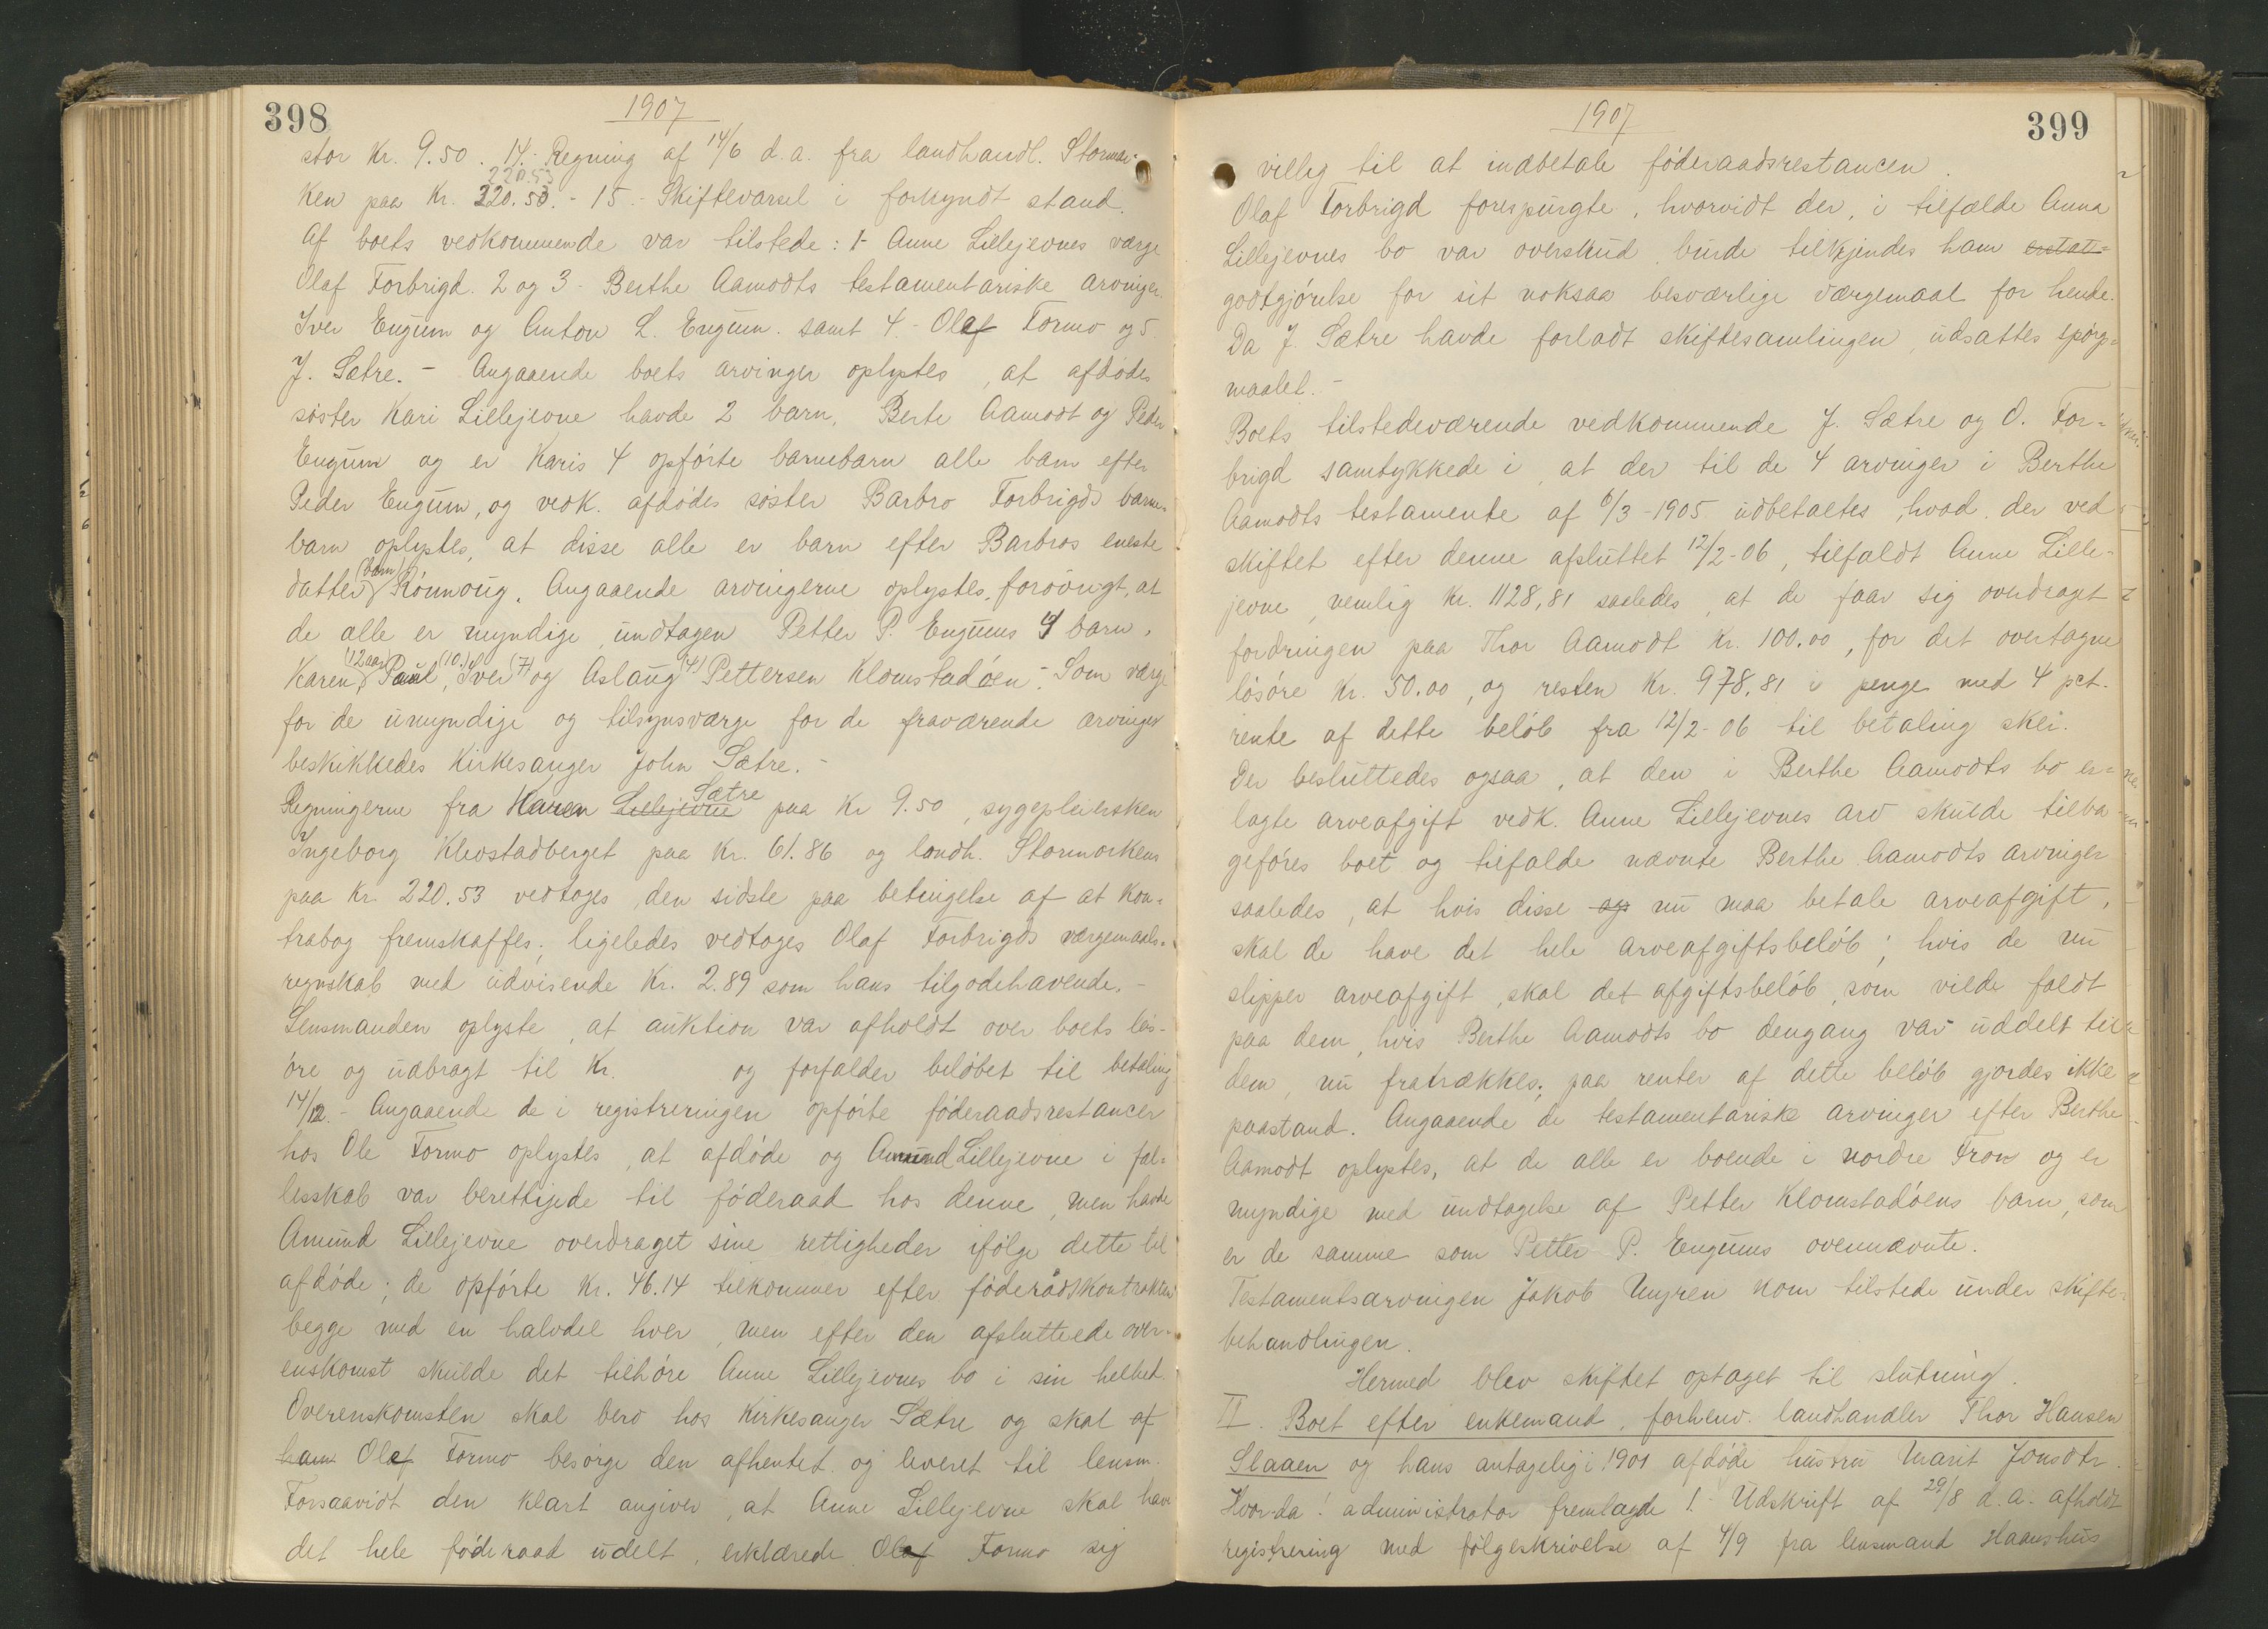 398
1907
stor Kr. 9.50. 14.- Regning af 14/6 d.a. fra landhandl. Stormor-
220.53
ken paa Kr. 220.53.- 15.- Skiftevarsel i forkyndt stand.
Af boets vedkommende var tilstede: 1- Anne Lillejevnes værge
Olaf Forbrigd. 2 og 3- Berthe Aamodts testamentariske arvinger
Iver Engum og Anton L. Engum. samt 4.- Olaf Formo og 5
J. Sætre. - Angaaende boets arvinger oplystes, at afdødes
søster Kari Lillejevne havde 2 barn, Berte Aamodt og Peder
Engum og er Karis 4 opførte barnebarn alle barn efter
Peder Engum, og vedk. afdødes søster Barbro Forbrigds barne-
barn oplystes, at disse alle er barn efter Barbros eneste
(barn)
datter Rønnoug. Angaaende arvingerne oplystes, forøvrigt, at
de alle er myndige, undtagen Petter P. Engums 4 barn,
(12 aar) (10.) (7) (4)
Karen, Paul, Iver og Aslaug Pettersen Klomstadøen.- Som værge
for de umyndige og tilsynsværge for de fraværende arvinger
beskikkedes Kirkesanger John Sætre. -
Sætre
Regningerne fra Karen Lillejevne paa Kr 9.50, sygepleiersken
Ingeborg Klevstadberget paa Kr. 61.86 og landh. Stormorkens
paa Kr. 220.53 vedtoges, den sidste paa betingelse af at kon-
trabog fremskaffes; ligeledes vedtoges Olaf Forbrigds værgemaals-
regnskab med udvisende Kr. 2.89 som hans tilgodehavende. -
Lensmanden oplyste, at auktion var afholdt over boets løs-
øre og udbragt til Kr. og forfalder beløbet til betaling
14/12.- Angaaende de i registreringen opførte føderaadsrestancer
hos Ole Formo oplystes, at afdøde og Amund Lillejevne i fæl-
lesskab var berettigede til føderaad hos denne, men havde
Amund Lillejevne overdraget sine rettigheder ifølge dette til
afdøde; de opførte Kr. 46.14 tilkommer efter føderådskontrakten
begge med en halvdel hver, men efter den afsluttede over-
enskomst skulde det tilhøre Anne Lillejevnes bo i sin helhet.
Overenskomsten skal bero hos Kirkesanger Sætre og skal af
ham Olaf Formo besørge den afhentet og leveret til lensm.
Forsaavidt den klart angiver, at Anne Lillejevne skal have
det hele føderaad udelt, erklærede Olaf Formo sig
399
1907
villig til at indbetale føderaadsrestancen.
Olaf Forbrigd forespurgte, hvorvidt der, i tilfælde Anna
Lillejevnes bo var overskud, burde tilkjendes ham erstat-
godtgjørelse for sit noksaa besværlige værgemaal for hende.
Da J. Sætre havde forladt skiftesamlingen, udsattes spørgs-
maalet. -
Boets tilstedeværende vedkommende J. Sætre og O. For-
brigd samtykkede i, at der til de 4 arvinger i Berthe
Aamodts testamente af 6/3-1905 udbetaltes, hvad der ved
skiftet efter denne afsluttet 12/2-06, tilfaldt Anne Lille-
jevne, nemlig Kr. 1128,81 saaledes, at de faar sig overdraget
fordringen paa Thor Aamodt Kr. 100.00, for det overtagne
løsøre Kr. 50.00, og resten Kr. 978,81 i penge med 4 pct.
rente af dette beløb fra 12/2-06 til betaling skei.
Der besluttedes ogsaa, at den i Berthe Aamodts bo er-
lagte arveafgift vedk. Anne Lillejevnes arv skulde tilba-
geføres boet og tilfalde nævnte Berthe Aamodts arvinger
saaledes, at hvis disse og nu maa betale arveafgift,
skal de have det hele arveafgiftsbeløb; hvis de nu
slipper arveafgift, skal det afgiftsbeløb, som vilde faldt
paa dem, hvis Berthe Aamodts bo dengang var uddelt til
dem, nu fratrækkes; paa renter af dette beløb gjordes ikke
paastand. Angaaende de testamentariske arvinger efter Berthe
Aamodt oplystes, at de alle er boende i nordre Fron og er
myndige med undtagelse af Petter Klomstadøens barn, som
er de samme som Petter P. Engums ovennævnte.
Testamentsarvingen Jakob Myren kom tilstede under skifte-
behandlingen.
Hermed blev skiftet optaget til slutning.
II. Boet efter enkemand, forhenv. landhandler Thor Hansen
Slaaen og hans antagelig i 1901 afdøde hustru Marit Jonsdtr.
Hvorda! administrator fremlagde 1.- Udskrift af 29/8 d.a. afholdt
registrering med følgeskrivelse af 4/9 fra lensmand Haanshus